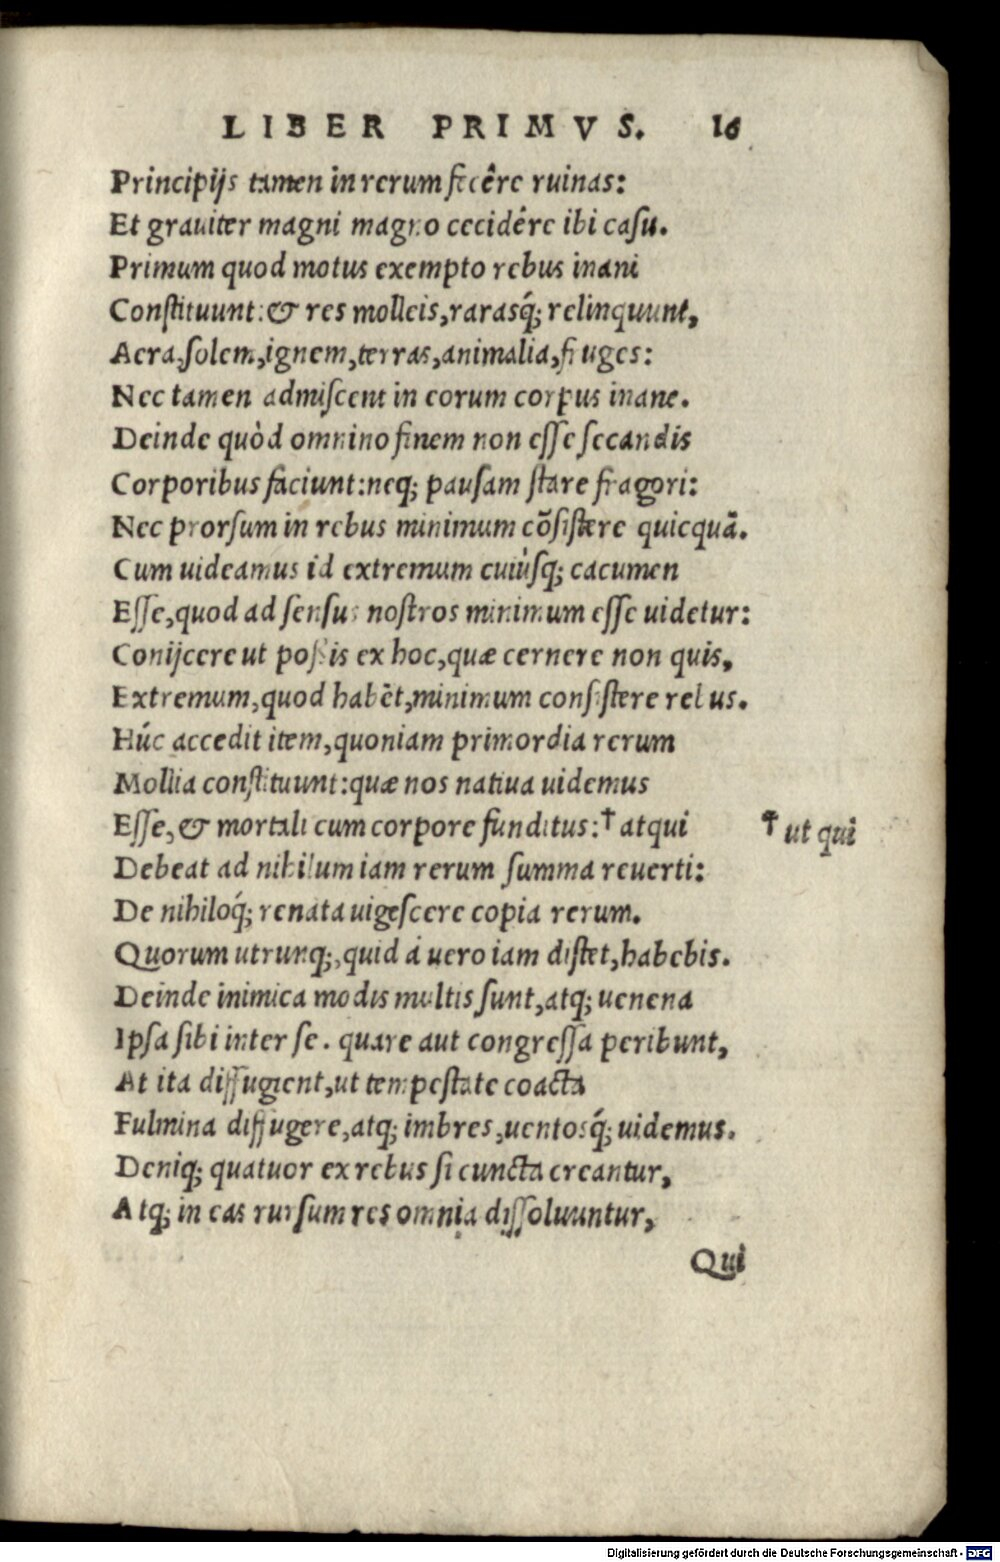 LIBER PRIMVS. 16
Principijs tamen in rerum fecêre ruinas:
Et grauiter magni magno cecidêre ibi casu.
Primum quod motus exempto rebus inani
Constituunt: & res molleis, rarasq́; relinquunt,
Aera, solem, ignem, terras, animalia, fruges:
Nec tamen admiscent in eorum corpus inane.
Deinde quòd omnino finem non esse secandis
Corporibus faciunt: neq; pausam stare fragori:
Nec prorsum in rebus minimum cõsistere quicquã.
Cum uideamus id extremum cuiúsq; cacumen
Esse, quod ad sensus nostros minimum esse uidetur:
Conijcere ut possis ex hoc, quæ cernere non quis,
Extremum, quod habẽt, minimum consistere rebus.
Húc accedit item, quoniam primordia rerum
Mollia constituunt: quæ nos natiua uidemus
Esse, & mortali cum corpore funditus: † atqui
† ut qui
Debeat ad nihilum iam rerum summa reuerti:
De nihiloq́; renata uigescere copia rerum.
Quorum utrunq;, quid á uero iam distet, habebis.
Deinde inimica modis multis sunt, atq; uenena
Ipsa sibi inter se. quare aut congressa peribunt,
At ita diffugient, ut tempestate coacta
Fulmina diffugere, atq; imbres, uentosq́; uidemus.
Deniq; quatuor ex rebus si cuncta creantur,
Atq; in eas rursum res omnia dissoluuntur,
Qui
Digitalisierung gefördert durch die Deutsche Forschungsgemeinschaft - DFG